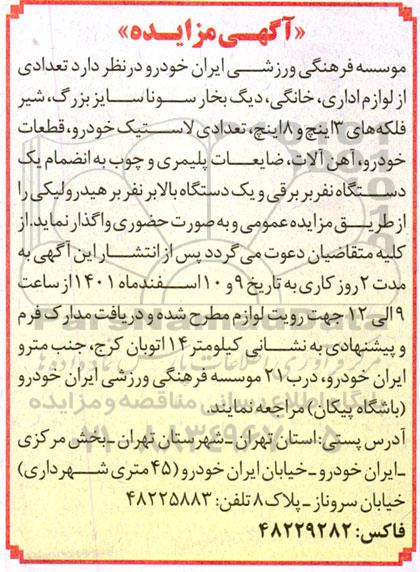 «آگهی مزایده»
موسسه فرهنگی ورزشی ایران خودرو در نظر دارد تعدادی
از لوازم اداری، خانگی، دیگ بخار سونا سایز بزرگ، شیر
فلکه های ۳اینچ و ۸اینچ، تعدادی لاستیک خودرو، قطعات
خودرو، آهن آلات، ضایعات پلیمری و چوب به انضمام یک
دستگاه نفربر برقی و یک دستگاه بالابر نفربر هیدرولیکی را
از طریق مزایده عمومی و به صورت حضوری واگذار نماید. از
کلیه متقاضیان دعوت می گردد پس از انتشار این آگهی به
مدت ۲روز کاری به تاریخ ۹ و ۱۰ اسفندماه ۱۴۰۱ از ساعت
۹ الی ۱۲ جهت رویت لوازم مطرح شده و دریافت مدارک فرم
و پیشنهادی به نشانی کیلومتر ۱۴ اتوبان کرج، جنب مترو
ایران خودرو، درب ۲۱ موسسه فرهنگی ورزشی ایران خودرو
(باشگاه پیکان) مراجعه نمایند.
آدرس پستی: استان تهران ـ شهرستان تهران ـ بخش مرکزی
ـ ایران خودرو ـ خیابان ایران خودرو (۴۵ متری شهرداری)
خیابان سروناز ـ پلاک ۸ تلفن: ۴۸۲۲۵۸۸۳
فاکس: ۴۸۲۲۹۲۸۲